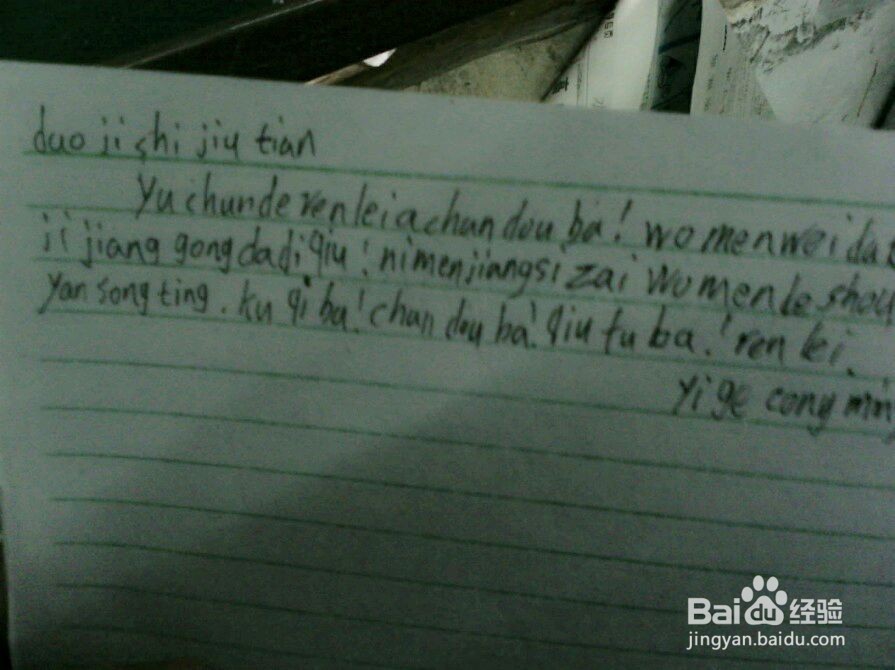 duo ji shi jiu tian
Yu chunde ren lei a chan dou ba! wo men wei da
ji jiang gong da di qiu! ni men jiang si zai wo men de shou
Yan song ting. ku qi ba! chan dou ba! qiu fu ba! ren lei.
Yi ge cong ming
Baidu 经验
jingyan.baidu.com